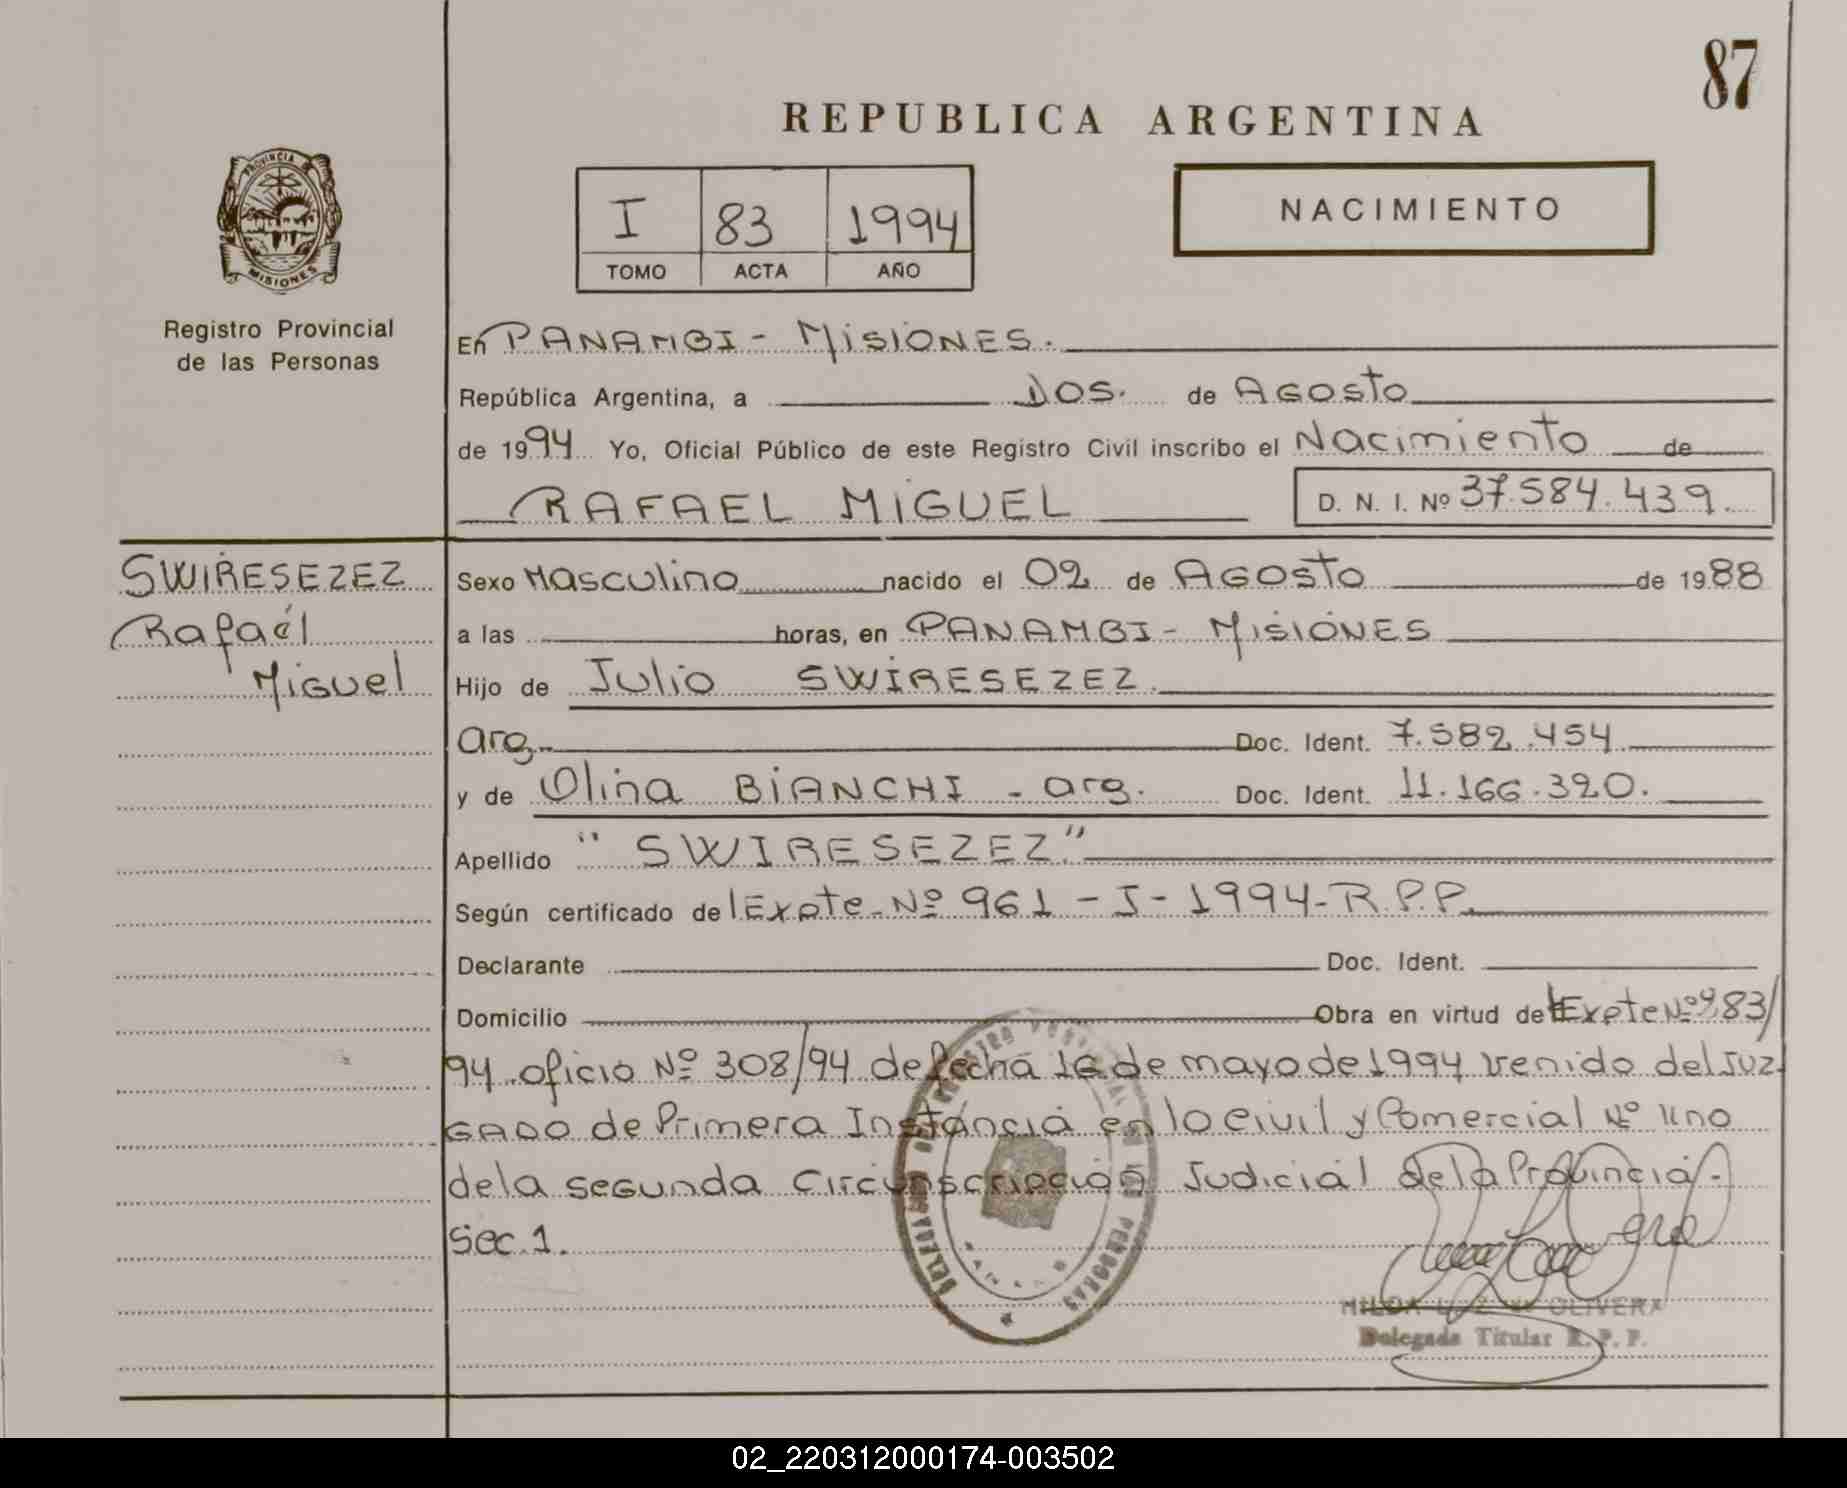 87
REPUBLICA ARGENTINA
PROVINCIA DE
MISIONES
Registro Provincial
de las Personas
I 83 1994
TOMO ACTA AÑO
NACIMIENTO
En PANAMBI - MISIONES.
República Argentina, a DOS. de AGOSTO
de 1994 Yo, Oficial Público de este Registro Civil inscribo el Nacimiento de
RAFAEL MIGUEL D. N. I. Nº 37.584.439.
SWIRESEZEZ
Rafael
Miguel
Sexo Masculino nacido el 02 de AGOSTO de 1988
a las horas, en PANAMBI - MISIONES
Hijo de Julio SWIRESEZEZ.
arg. Doc. Ident. 7.582.454
y de Olina BIANCHI - arg. Doc. Ident. 11.166.320.
Apellido "SWIRESEZEZ"
Según certificado de Expte. Nº 961 - I - 1994 - R.P.P.
Declarante Doc. Ident.
Domicilio Obra en virtud de Expte Nº 983/
94. oficio Nº 308/94 de fecha 16 de mayo de 1994 venido del Juz
GADO de Primera Instancia en lo Civil y Comercial Nº uno
de la segunda Circunscripción Judicial de la Provincia.
Sec. 1.
HILDA OLIVERA
Delegada Titular R. P. P.
02_220312000174-003502